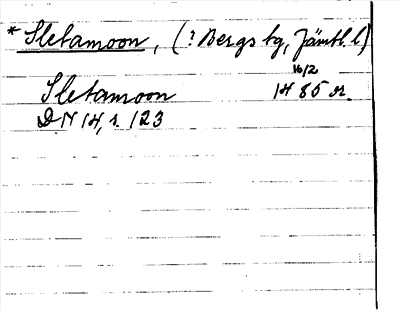 * Sletamoon, (? Bergs sg, Jämtl. l)
16/2
Sletamoon 1485 or.
DN 14, s. 123